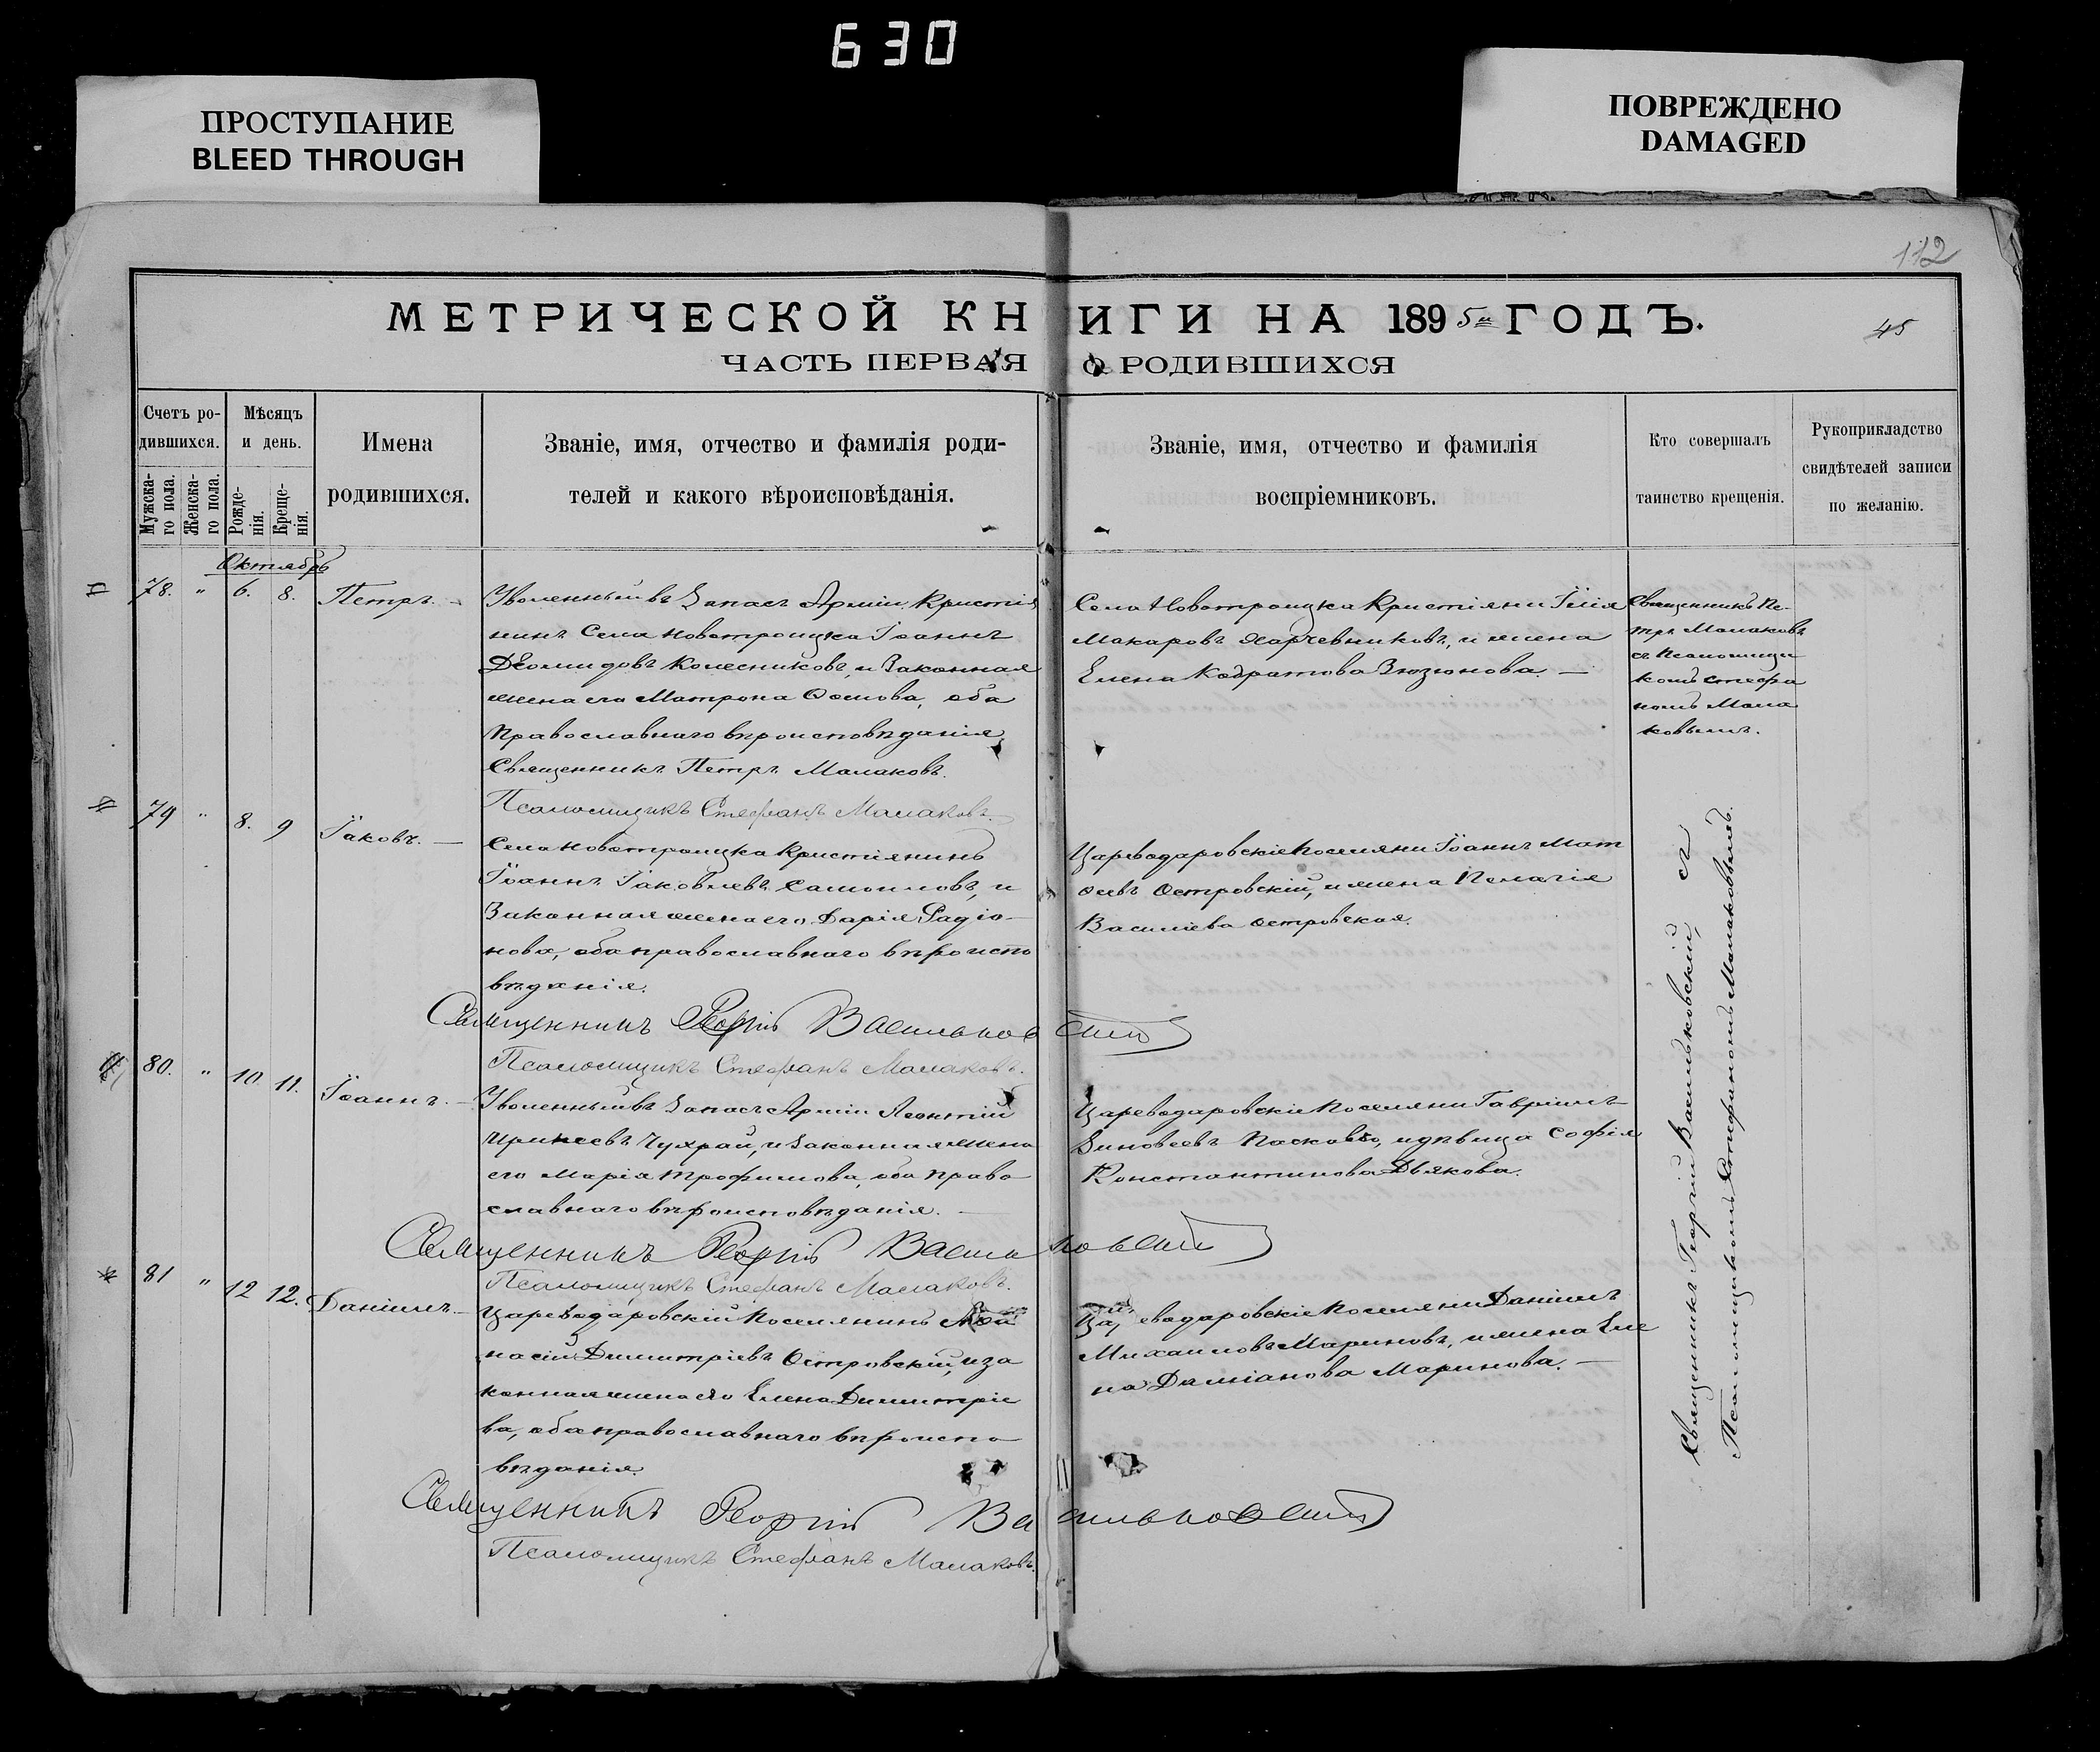 630
ПРОСТУПАНИЕ
BLEED THROUGH
ПОВРЕЖДЕНО
DAMAGED
112
МЕТРИЧЕСКОЙ КНИГИ НА 1895й ГОДЪ.
45
ЧАСТЬ ПЕРВАЯ О РОДИВШИХСЯ
Счетъ ро-
дившихся.
Мужска-
го пола.
Женска-
го пола.
Мѣсяцъ
и день.
Рожде-
нія.
Креще-
нія.
Имена
родившихся.
Званіе, имя, отчество и фамилія роди-
телей и какого вѣроисповѣданія.
Званіе, имя, отчество и фамилія
воспріемниковъ.
Кто совершалъ
таинство крещенія.
Рукоприкладство
свидѣтелей записи
по желанію.
Октябрь
78. " 6. 8. Петръ. –
Уволенный въ Запасъ Арміи, Кристія
нинъ Села Новотроицка Іоаннъ
Деомидовъ Колесниковъ, и Законная
жена его Матрона Осипова, оба
православнаго вѣроисповѣданія
Священникъ Петръ Малаковъ.
Псаломщикъ Стефанъ Малаковъ.
Села Новотроицка Кристіяни Илія
Макаровъ Харчевниковъ, и жена
Елена Кодратова Зюзюнова. –
Священникъ Пе-
тръ Малаковъ
съ Псаломщи
комъ Стефа
номъ Мала
ковымъ.
79 " 8. 9 Іаковъ. –
Села Новотроицка Кристіянинъ
Іоаннъ Іаковлевъ Самоиловъ, и
Законная жена его Дарія Радіо-
нова, оба православнаго вѣроиспо
вѣданія.
Священникъ Георгій Васильковскій
Псаломщикъ Стефанъ Малаковъ.
Цареводаровскіе Поселяни Іоаннъ Мат
ѳеевъ Островскій, и жена Пелагія
Василіева Островская.
80. " 10. 11. Іоаннъ. –
Уволенный въ Запасъ Арміи Леонтій
Иринеевъ Чухрай, и Законная жена
его Марія Трофимова, оба право
славнаго вѣроисповѣданія. –
Священникъ Георгій Васильковскій
Псаломщикъ Стефанъ Малаковъ.
Цареводаровскіе Поселяни Гавріилъ
Зиновеевъ Пасковъ, и дѣвица Софія
Константинова Дьякова.
81 " 12 12. Даніилъ –
Цареводаровскій Поселянинъ
насій Димитріевъ Островскій, и за
конная жена его Елена Димитріе
ва, оба православнаго вѣроиспо
вѣданія.
Священникъ Георгій Васильковскій
Псаломщикъ Стефанъ Малаковъ.
Цареводаровскіе Поселяни Даніилъ
Михаиловъ Мариновъ, и жена Еле
на Даміанова Маринова. –
Священникъ Георгій Васильковскій, съ
Псаломщикомъ Стефаномъ Малаковымъ.